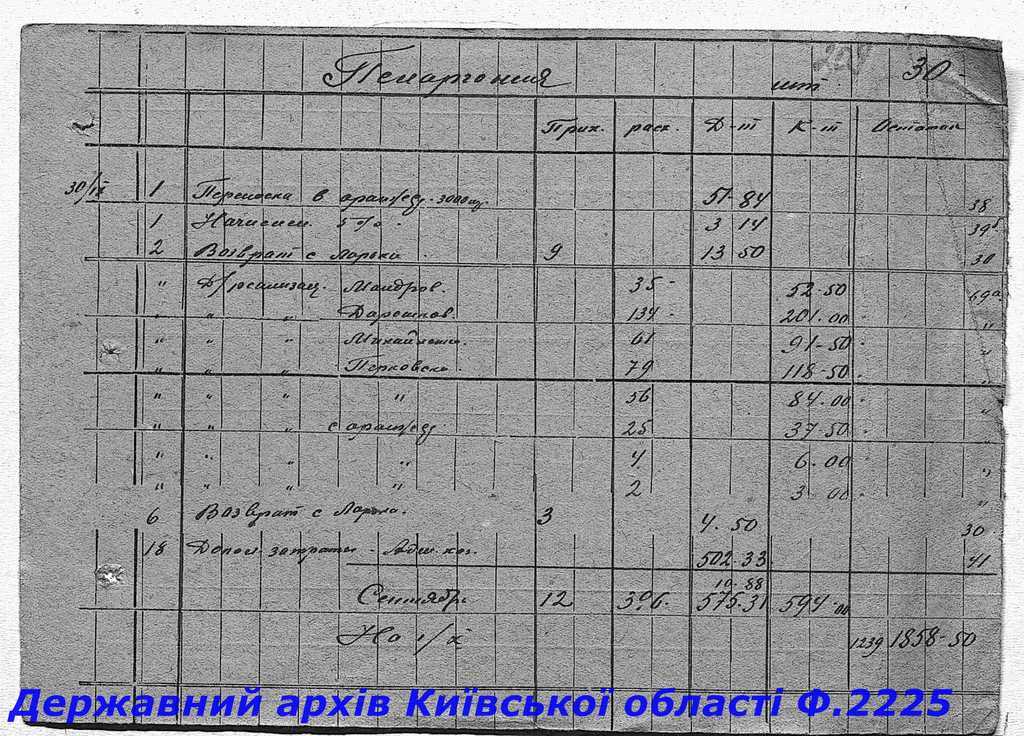 Пеларгония шт 30
Прих. расх. Д-т К-т Остаток
30/IX 1 Переноска в оранжер. 3000 51-84 38
1 Начислен. 5% 3 14 39
2 Возврат с ларька 9 13 50 30
" Д/реализац. 35- 52-50 69а
" " " 134- 201.00 "
" " " Михайленко. 61 91-50 "
" " " Перковско 79 118-50 "
" " " " 56 84.00 "
" " " с оранжер 25 37-50
" " " " 4 6.00 "
" " " " 2 3 00 "
6 Возврат с Ларька. 3 4.50 30
18 Допол. затраты - Адм. хоз. 502-33 41
19.88
Сентябрь 12 396. 575.31 594-00
На 1/X 1239 1858-50
Державний архів Київської області Ф.2225